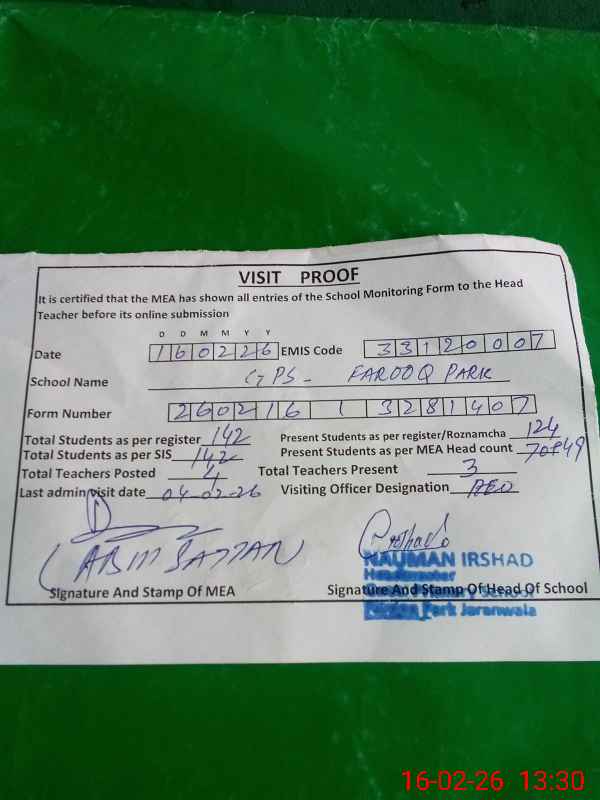 VISIT PROOF
It is certified that the MEA has shown all entries of the School Monitoring Form to the Head
Teacher before its online submission
D D M M Y Y
Date 160226 EMIS Code 33120007
School Name GPS- FAROOQ PARK
Form Number 260216 1 3281407
Total Students as per register 142 Present Students as per register/Roznamcha 124
Total Students as per SIS 142 Present Students as per MEA Head count 70+49
Total Teachers Posted 4 Total Teachers Present 3
Last admin visit date 04-02-26 Visiting Officer Designation AEO
NAUMAN IRSHAD
Headteacher
Signature And Stamp Of MEA Signature And Stamp Of Head Of School
Primary School
Park Jaranwala
16-02-26 13:30